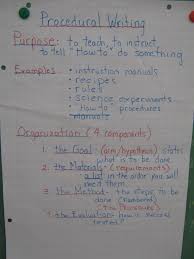 Procedural Writing
Purpose: to teach, to instruct
To tell "How to" do something
Examples • instruction manuals
• recipes
• rules
• science experiments
• "How to" procedures
manuals
Organization (4 components)
1. the Goal - (aim/hypothesis) states
what is to be done
2. the Materials - (requirements)
a list in the order you will
need them
3. the Method - the steps to be
done (numbered)
(the Procedure)
4. the Evaluation - how is success
tested?